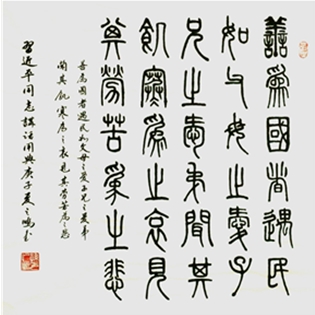 善為國者遇民
如父母之愛子
兄之愛弟聞其
飢寒為之哀見
其勞苦為之悲
善為國者遇民如父母之愛子兄之愛弟
聞其飢寒為之哀見其勞苦為之悲
習近平同志講話用典庚子夏之鳴書